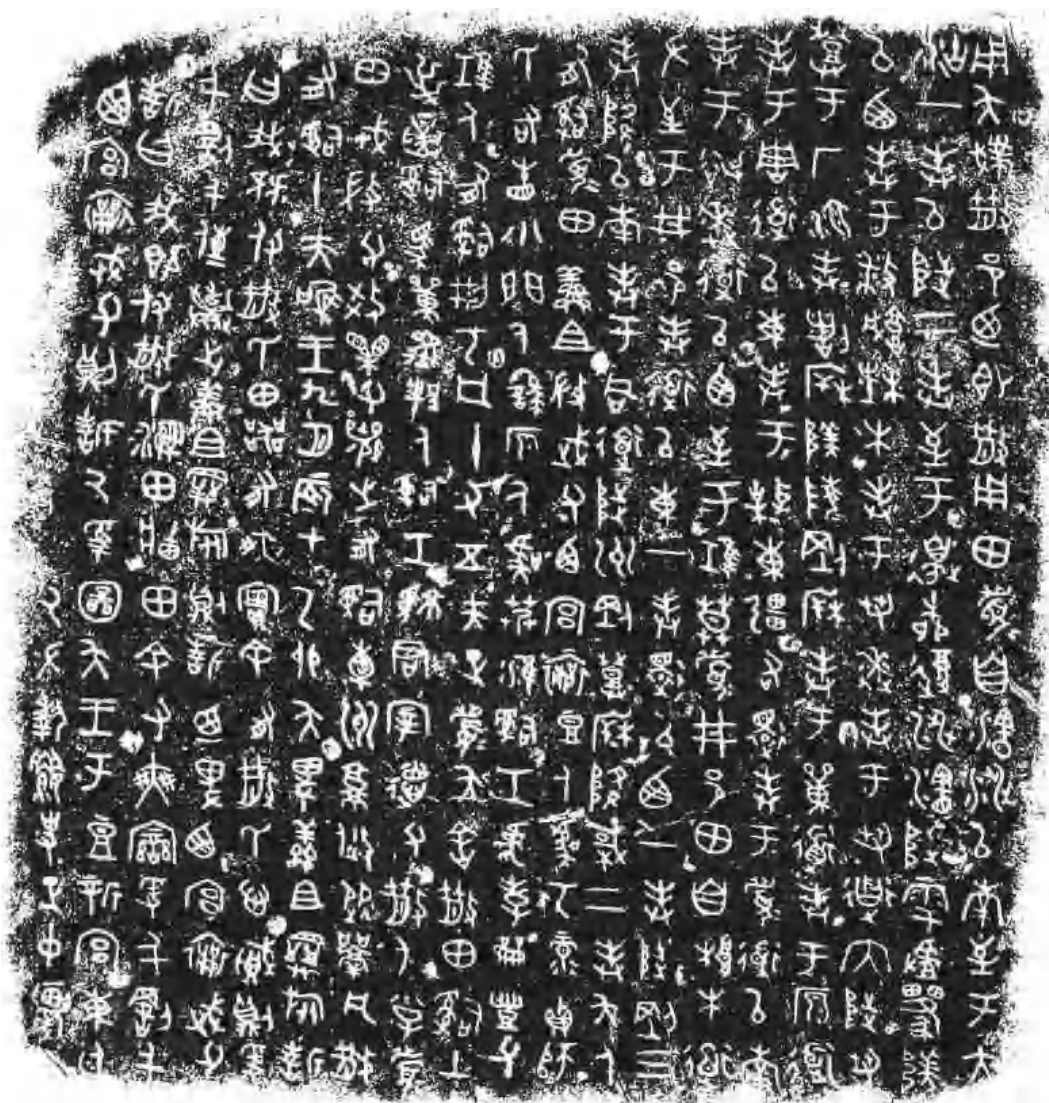 用夨𢷎散邑迺即散用田眉自瀗涉以南至于大
沽一封以陟二封至于邊柳復涉瀗陟雩
以西封于敝城楮木封于芻逨封于芻道内陟芻
登于厂湶封剖陵剛封于道封于原道
封于周道以東封于東疆右還封于眉道以南
封于逨道以西至于𨾊莫眉井邑田自根木道
左至于井邑封道以東一封還以西一封陟剛三
封降以南封于同道陟州剛登降棫二封夨人
有𤔲眉田鮮且微武父西宮襄豆人虞丂彔貞師
氏右眚小門人繇原人虞艿淮𤔲工虎孝龠豐父
𨾊人有𤔲刑丂凡十又五夫正眉夨舍散田𤔲土
屰𤔲馬人𤔲工君宰德父散人小子眉
田戎微父效父襄之有𤔲橐州焂從凡散
有𤔲十夫唯王九月辰才乙卯夨卑鮮且旅誓
曰我既付散氏田器有爽實余有散氏心賊則爰
千罰千傳棄之鮮且旅則誓迺卑西宮襄武父
誓曰我既付散氏濕田畛田余有爽變爰千罰千
西宮襄武父則誓厥為圖夨王于豆新宮東廷
厥左執史正中農